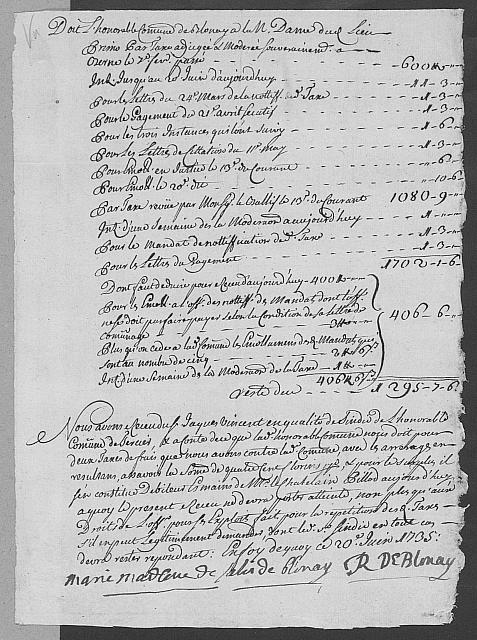 Doit L'honorable Comune de Blonay a la Nle Dame du d. Lieu
Primo Par Taxe adjugée & Moderée souverainemt a
Berne le 2e fevr. passé 600
Int. Jusqu'au 20 Juin d'aujourdhuy 11-3
Pour les Lettres du 24e Mars de la notiff. de d. Taxe 1-3
Pour le Payement du 21e avril secutif 1-3
Pour les trois Instances qui l'ont suivy 1-6
Pour les Lettres de du 11e may 1-3
Pour en Justice le 13e du Courant 6
Pour le 20e dit 10-6
Par Taxe par Monsr. le Baillif le 13e du Courant 1080-9
Int. d'une Semaine des la Moderaon a aujourd'huy 1
Pour le Mandat de nottiffication de d. Taxe 1-3
Pour les Lettres du Payement 1-3
1702-1-6
Dont faut deduire pour Receu d'aujourd'huy 400
Pour les a l'off. des nottiff. des Mandat dont l'off.
doit parfaire payer selon la Condition de la lettre de
406-6
Plus qu'on cede a la d. Comune les Enrollemens des d. Mandats qui
sont au nombre de cinq 2 6
Int. d'une Semaine de la Moderaon de la Taxe 1
406 6
reste due 1295-7-6
Nous avons Receu du Sr. Jaques Vincent en qualité de Sindic de L'honorable
Comune de & a conte de ce que la d. honorable Comune nous doit pour
deux Taxes de frais que nous avons contre la d. Comune avec les arrerages en
resultans, assavoir la Some de quatre cent florins & pour le surplus il
s'en constitue Debiteur Es mains de Mr. le Chatelain aujourd'huy
a quoy le present Receu ne devra porter atteinte, non plus qu'aux
Droits de l'off. pour ses Exploits fait pour la repetition des d. Taxes
s'il en peut Legitimement demander, dont le d. Sr. Sindic en tout cas
devra rester repondant: En foy de quoy ce 20e Juin 1705:
marie madelene de de blonay R DE Blonay